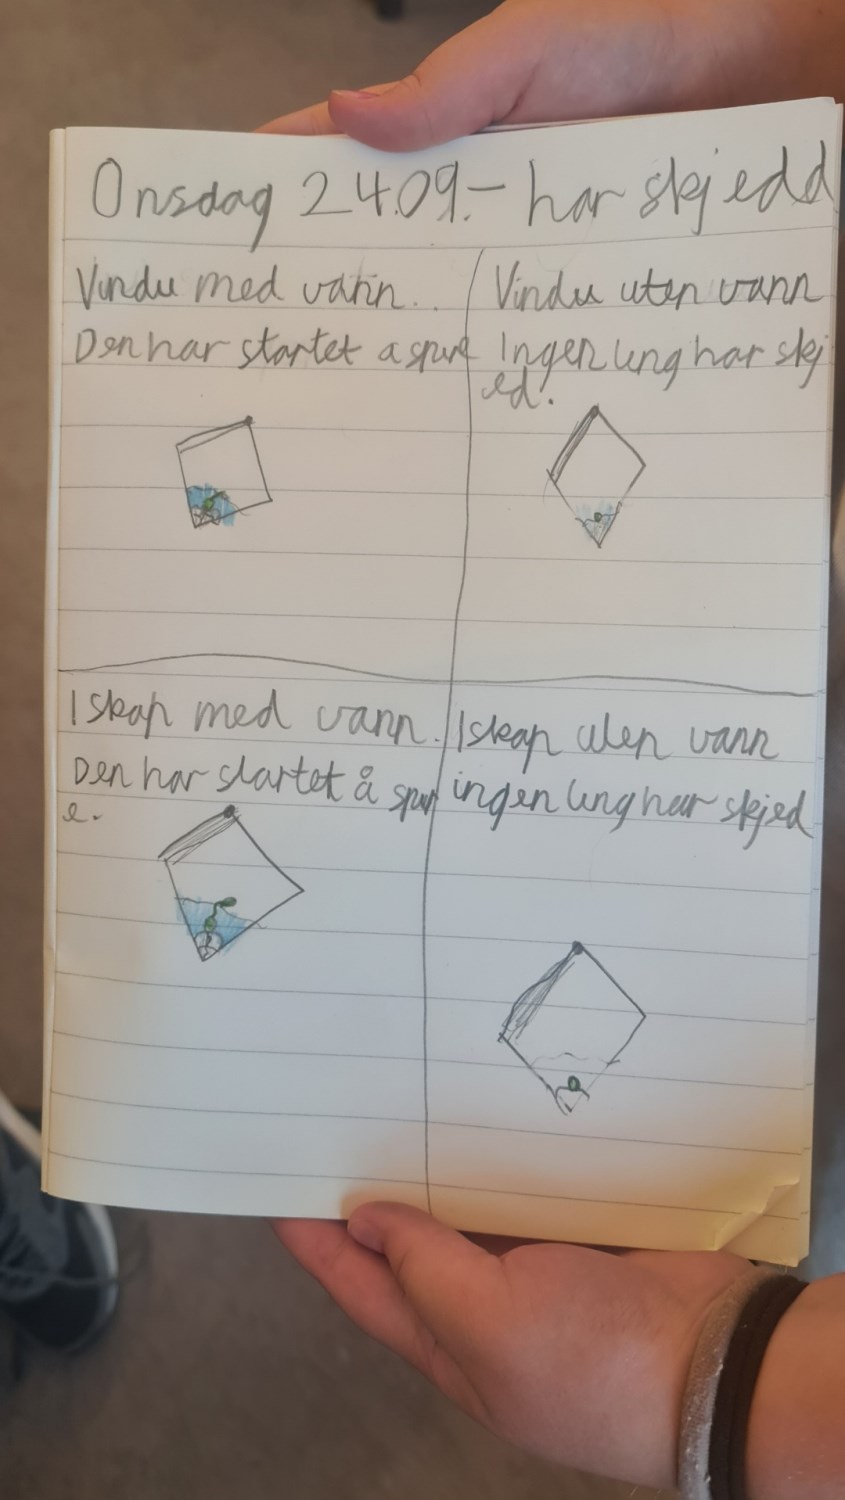 Onsdag 24.09.- har skjedd
Vindu med vann..
Den har startet a spire
Vindu uten vann
Ingen ting har skj
ed.
I skap med vann.
Den har startet å spir
e.
I skap uten vann
ingen ting har skjed